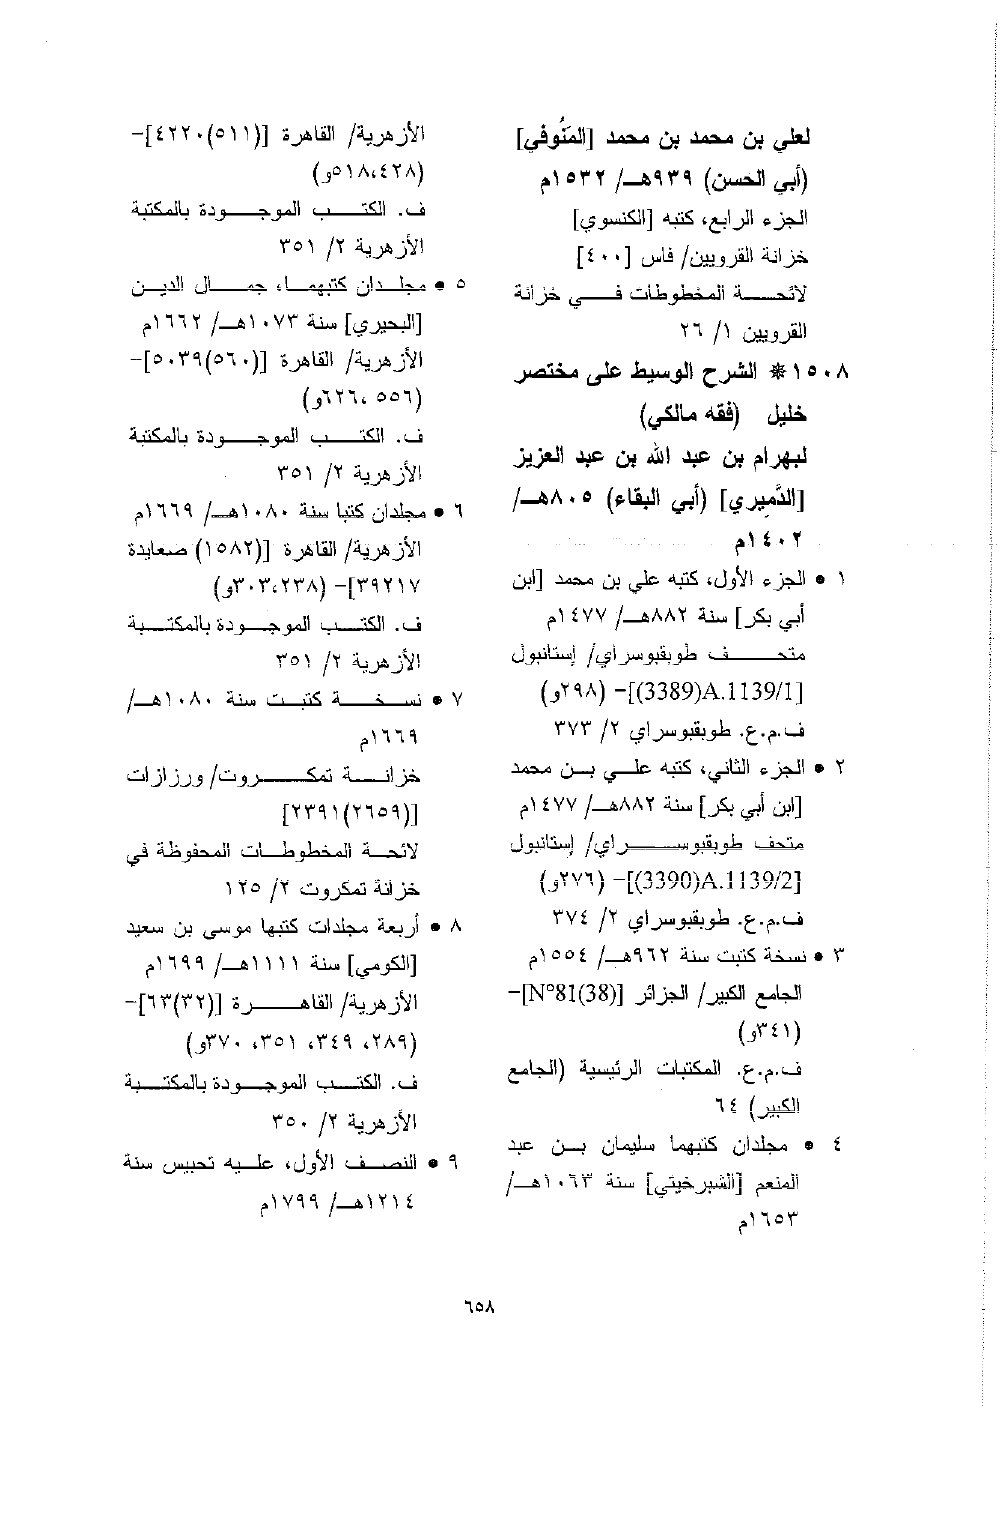 لعلي بن محمد بن محمد [المَنُوفي]
(أبي الحسن) ٩٣٩هـ/ ١٥٣٢م
الجزء الرابع، كتبه [الكنسوي]
خزانة القرويين/ فاس [٤٠٠]
لائحة المخطوطات في خزانة
القرويين ١/ ٢٦
١٥٠٨* الشرح الوسيط على مختصر
خليل (فقه مالكي)
لبهرام بن عبد الله بن عبد العزيز
[الدَّمِيري] (أبي البقاء) ٨٠٥هـ/
١٤٠٢م
١ • الجزء الأول، كتبه علي بن محمد [ابن
أبي بكر] سنة ٨٨٢هـ/ ١٤٧٧م
متحف طوبقبوسراي/ إستانبول
[(3389)A.1139/1]- (٢٩٨و)
ف.م.ع. طوبقبوسراي ٢/ ٣٧٣
٢ • الجزء الثاني، كتبه علي بن محمد
[ابن أبي بكر] سنة ٨٨٢هـ/ ١٤٧٧م
متحف طوبقبوسراي/ إستانبول
[(3390)A.1139/2]- (٢٧٦و)
ف.م.ع. طوبقبوسراي ٢/ ٣٧٤
٣ • نسخة كتبت سنة ٩٦٢هـ/ ١٥٥٤م
الجامع الكبير/ الجزائر [N°81(38)]-
(٣٤١و)
ف.م.ع. المكتبات الرئيسية (الجامع
الكبير) ٦٤
٤ • مجلدان كتبهما سليمان بن عبد
المنعم [الشبرخيتي] سنة ١٠٦٣هـ/
١٦٥٣م
الأزهرية/ القاهرة [(٥١١)٤٢٢٠]-
(٥١٨،٤٢٨و)
ف. الكتب الموجودة بالمكتبة
الأزهرية ٢/ ٣٥١
٥ • مجلدان كتبهما، جمال الدين
[البحيري] سنة ١٠٧٣هـ/ ١٦٦٢م
الأزهرية/ القاهرة [(٥٦٠)٥٠٣٩]-
(٥٥٦، ٦٢٦و)
ف. الكتب الموجودة بالمكتبة
الأزهرية ٢/ ٣٥١
٦ • مجلدان كتبا سنة ١٠٨٠هـ/ ١٦٦٩م
الأزهرية/ القاهرة [(١٥٨٢) صعايدة
٣٩٢١٧]- (٣٠٣،٢٣٨و)
ف. الكتب الموجودة بالمكتبة
الأزهرية ٢/ ٣٥١
٧ • نسخة كتبت سنة ١٠٨٠هـ/
١٦٦٩م
خزانة تمكروت/ ورزازات
[(٢٦٥٩)٢٣٩١]
لائحة المخطوطات المحفوظة في
خزانة تمكروت ٢/ ١٢٥
٨ • أربعة مجلدات كتبها موسى بن سعيد
[الكومي] سنة ١١١١هـ/ ١٦٩٩م
الأزهرية/ القاهرة [(٣٢)٦٣]-
(٢٨٩، ٣٤٩، ٣٥١، ٣٧٠و)
ف. الكتب الموجودة بالمكتبة
الأزهرية ٢/ ٣٥٠
٩ • النصف الأول، عليه تحبيس سنة
١٢١٤هـ/ ١٧٩٩م
٦٥٨